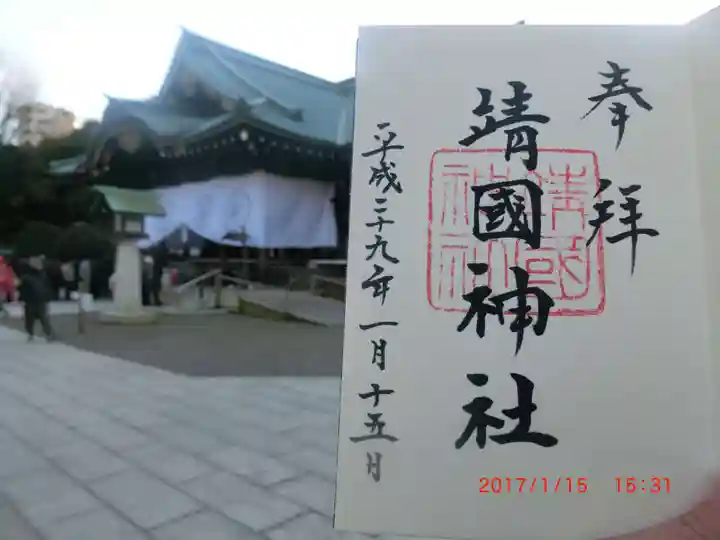 奉拝
靖國神社
靖国神社
平成二十九年一月十五日
2017/1/15 15:31